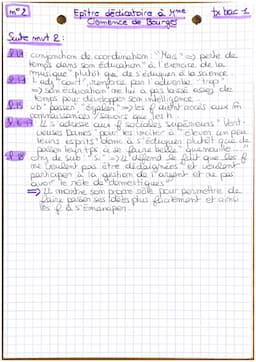 m° 2 Epître dédicatoire à Mme tx bac 1
Clémence de Bourges
Suite mvt 2 :
conjonction de coordination : "Mais" => perte de
temps dans son éducation "à l'exercice de la
musique" plutôt que de s'éduquer à la science
adj "court", renforcé par l'adverbe "trop"
=> son éducation ne lui a pas laissé assez de
temps pour développer son intelligence
vb "passer" "égaler" => les f aient accès aux m
connaissances / savoirs que les h
Il s'adresse aux f sociales supérieures "Vert-
ueuses Dames" pour les inciter à "élever un peu
leurs esprits" donc à s'éduquer plutôt que de
passer leur tps à se faire belle "quenouille..."
"si" => il défend le fait que les f
ne doivent pas être dédaignées" et veulent
participer à la gestion de l'argent et ne pas
avoir le rôle de domestiques"
=> Il montre son propre rôle pour permettre de
faire passer ses idées plus facilement et ainsi
les f à s'émanciper